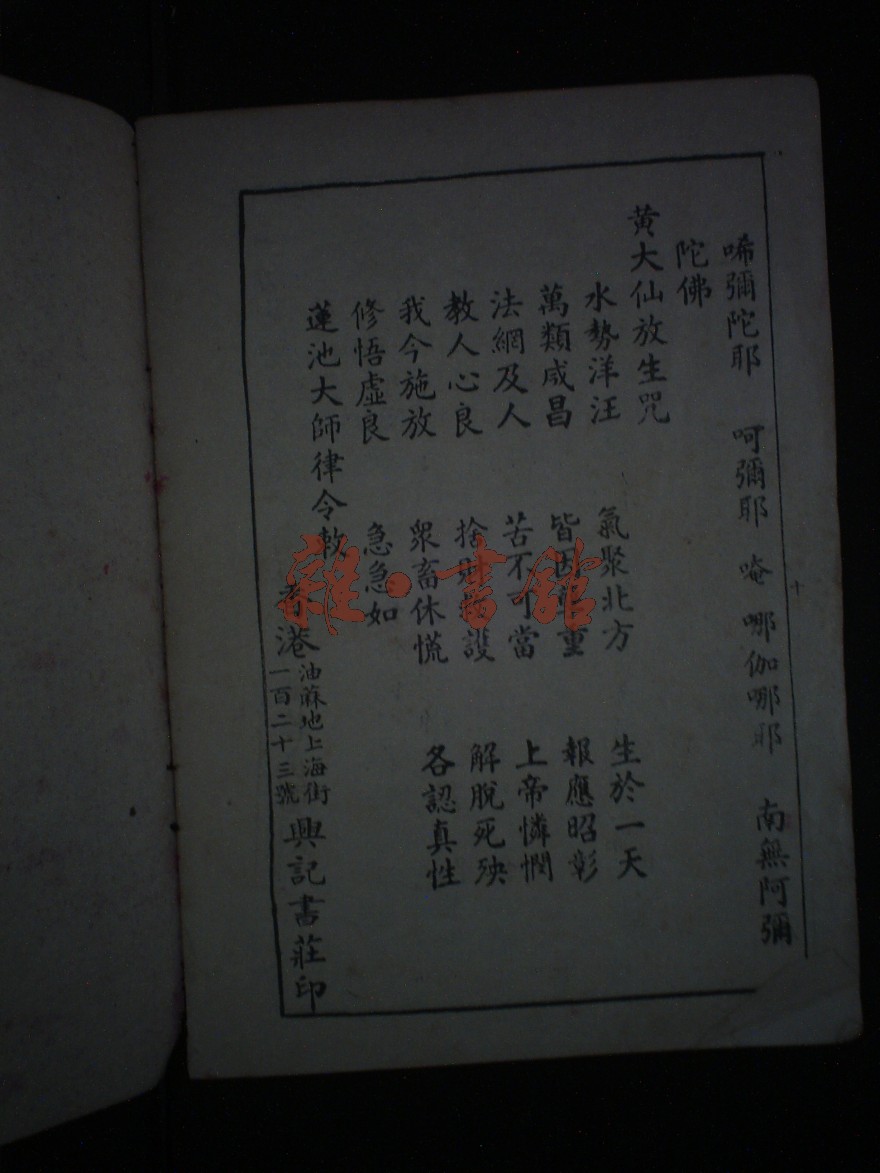 唏彌陀耶 呵彌耶 唵 哪伽哪耶 南無阿彌
陀佛
黃大仙放生咒
水勢洋汪 氣聚北方 生於一天
萬類咸昌 皆因 重 報應昭彰
法網及人 苦不可當 上帝憐憫
教人心良 捨財 護 解脫死殃
我今施放 衆畜休慌 各認真性
修悟虛良 急急如
蓮池大師律令敕
香港 油蔴地上海街 一百二十三號 興記書莊印
十
雜·書館